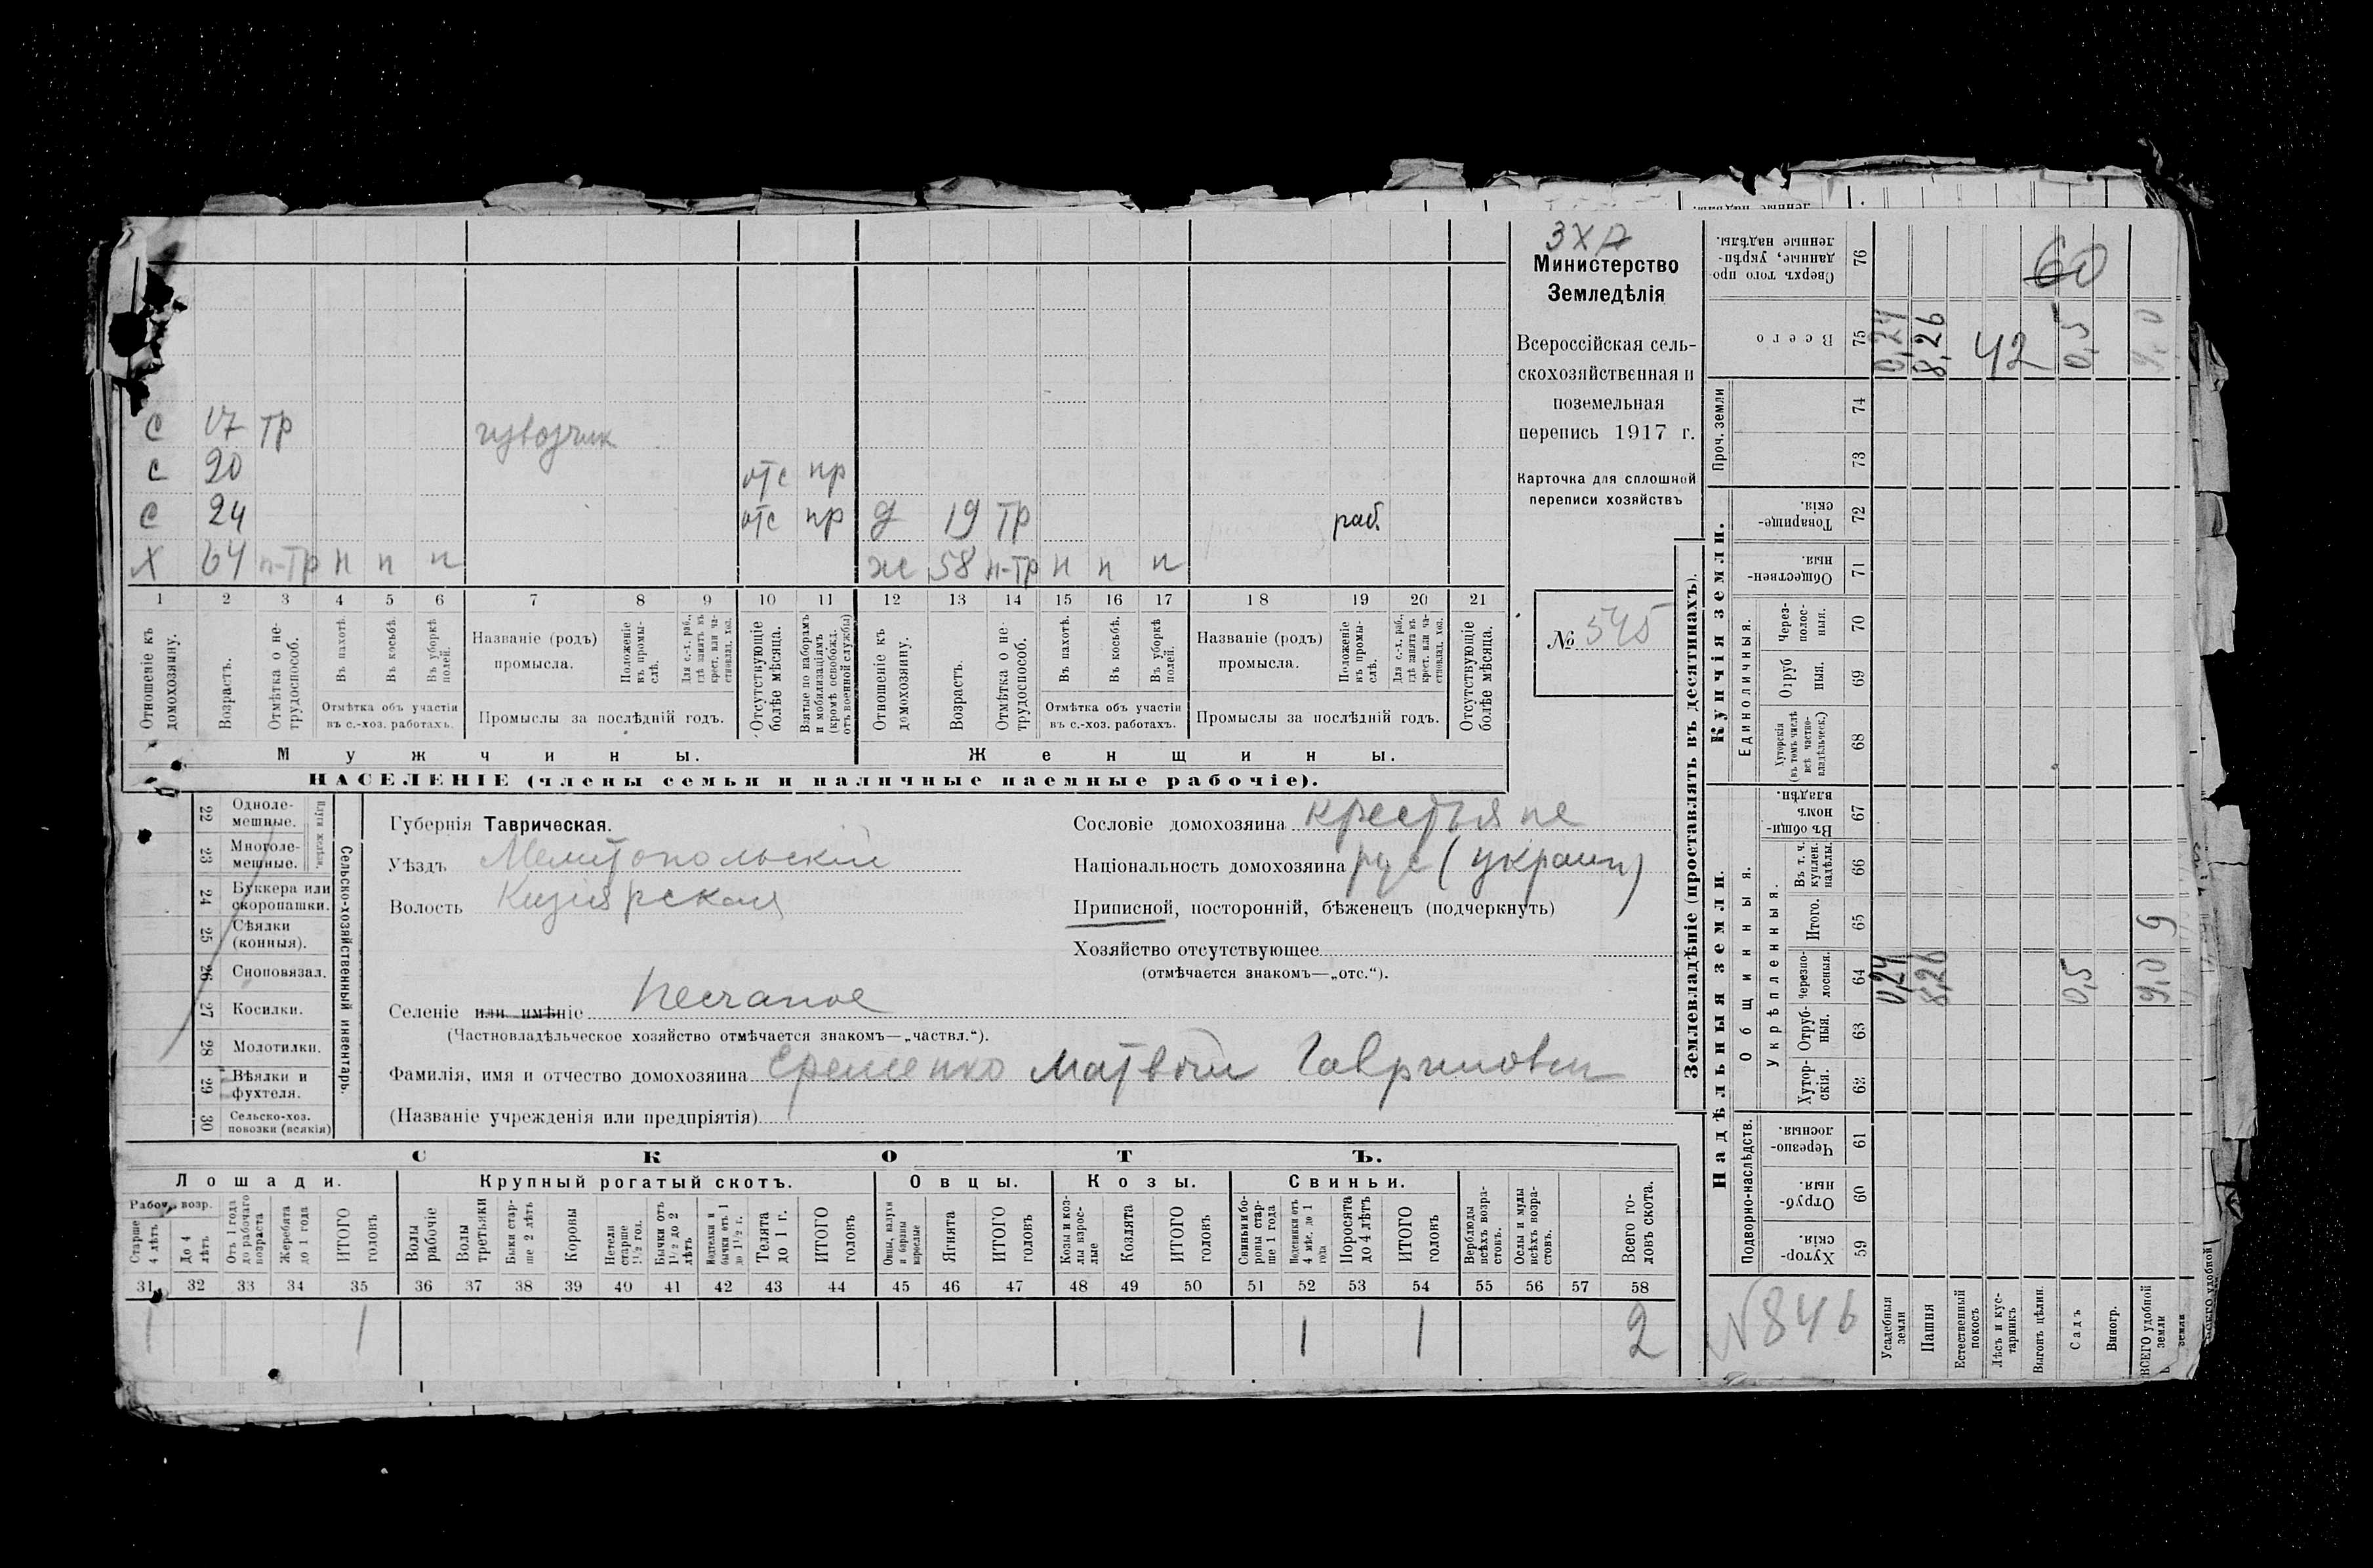 ЗХА
Министерство
Земледѣлія
Всероссійская сель-
скохозяйственная и
поземельная
перепись 1917 г.
Карточка для сплошной
переписи хозяйствъ
№ 545
С 17 тр извозчик
С 20 отс пр
С 24 отс пр д 19 тр раб.
Х 64 п-тр н н н ж 58 н-тр н н н
1 2 3 4 5 6 7 8 9 10 11 12 13 14 15 16 17 18 19 20 21
Отношеніе къ домохозяину.
Возрастъ.
Отмѣтка о не-трудоспособ.
Въ пахотѣ.
Въ косьбѣ.
Въ уборкѣ полей.
Отмѣтка объ участіи
въ с.-хоз. работахъ.
Названіе (родъ)
промысла.
Положеніе въ промы-слѣ.
Для с.-х. раб., гдѣ занятъ въ крест. или ча-стновлад. хоз.
Промыслы за послѣдній годъ.
Отсутствующіе болѣе мѣсяца.
Взятые по наборамъ и мобилизаціямъ (кромѣ освобожд. отъ военной службы)
Отношеніе къ домохозяину.
Возрастъ.
Отмѣтка о не-трудоспособ.
Въ пахотѣ.
Въ косьбѣ.
Въ уборкѣ полей.
Отмѣтка объ участіи
въ с.-хоз. работахъ.
Названіе (родъ)
промысла.
Положеніе въ промы-слѣ.
Для с.-х. раб., гдѣ занята въ крест. или ча-стновлад. хоз.
Промыслы за послѣдній годъ.
Отсутствующіе болѣе мѣсяца.
Мужчины.
Женщины.
НАСЕЛЕНІЕ (члены семьи и наличные наемные рабочіе).
22 Одноле-мешные.
23 Многоле-мешные.
24 Буккера или скоропашки.
25 Сѣялки (конныя).
26 Сноповязал.
27 Косилки.
28 Молотилки.
29 Вѣялки и фухтеля.
30 Сельско-хоз. повозки (всякія)
Сельско-хозяйственный инвентарь.
Губернія Таврическая.
Уѣздъ Мелитопольскій
Волость Кизіярская
Селеніе или имѣніе Песчаное
(Частновладѣльческое хозяйство отмѣчается знакомъ—„частвл.“).
Фамилія, имя и отчество домохозяина Еременко Матвѣй Гаврилович
(Названіе учрежденія или предпріятія)
Сословіе домохозяина крестьяне
Національность домохозяина рус (украин)
Приписной, посторонній, бѣженецъ (подчеркнуть)
Хозяйство отсутствующее
(отмѣчается знакомъ—„отс.“).
СКОТЪ.
Лошади. Крупный рогатый скотъ. Овцы. Козы. Свиньи.
Рабоч. возр.
Старше 4 лѣтъ
До 4 лѣтъ
Отъ 1 года до рабочаго возраста
Жеребята до 1 года
ИТОГО головъ
Волы рабочіе
Волы третьяки
Быки стар-ше 2 лѣтъ
Коровы
Нетели старше 1½ год.
Бычки отъ 1½ до 2 лѣтъ
Подтелки и бычки отъ 1 до 1½ г.
Телята до 1 г.
ИТОГО головъ
Овцы, валухи и бараны взрослые
Ягнята
ИТОГО головъ
Козы и коз-лы взрос-лые
Козлята
ИТОГО головъ
Свиньи и бо-ровы стар-ше 1 года
Подсвинки отъ 4 мѣс. до 1 года
Поросята до 4 лѣтъ
ИТОГО головъ
Верблюды всѣхъ возра-стовъ.
Ослы и мулы всѣхъ возра-стовъ.
Всего го-ловъ скота.
31 32 33 34 35 36 37 38 39 40 41 42 43 44 45 46 47 48 49 50 51 52 53 54 55 56 57 58
1 1 1 1 2
Землевладѣніе (проставлять въ десятинахъ).
Купчія земли.
Надѣльныя земли.
Сверхъ того про-данные, укрѣп-ленные надѣлы. 76 60
Всего 75 0,24 8,26 42 0,5 9,0
Проч. земли 74 73
Товарище-скія. 72
Обществен-ныя. 71
Единоличныя.
Через-полос-ныя. 70
Отруб ныя. 69
Хуторскія (въ томъ числѣ всѣ частно-владѣльческ.) 68
Общинныя.
Въ общи-номъ владѣн. 67
Укрѣпленныя.
Въ т. ч. куплен. надѣлы. 66
Итого. 65
Черезпо-лосныя. 64 0,24 8,26 0,5 9,0
Отруб-ныя. 63
Хутор-скія. 62
Подворно-наслѣдств.
Черезпо-лосныя. 61
Отруб-ныя. 60
Хутор-скія. 59
N 846
Усадебныя земли
Пашня
Естественный покосъ
Лѣсъ и кус-тарникъ
Выгонъ цѣлин.
Садъ
Виногр.
ВСЕГО удобной земли